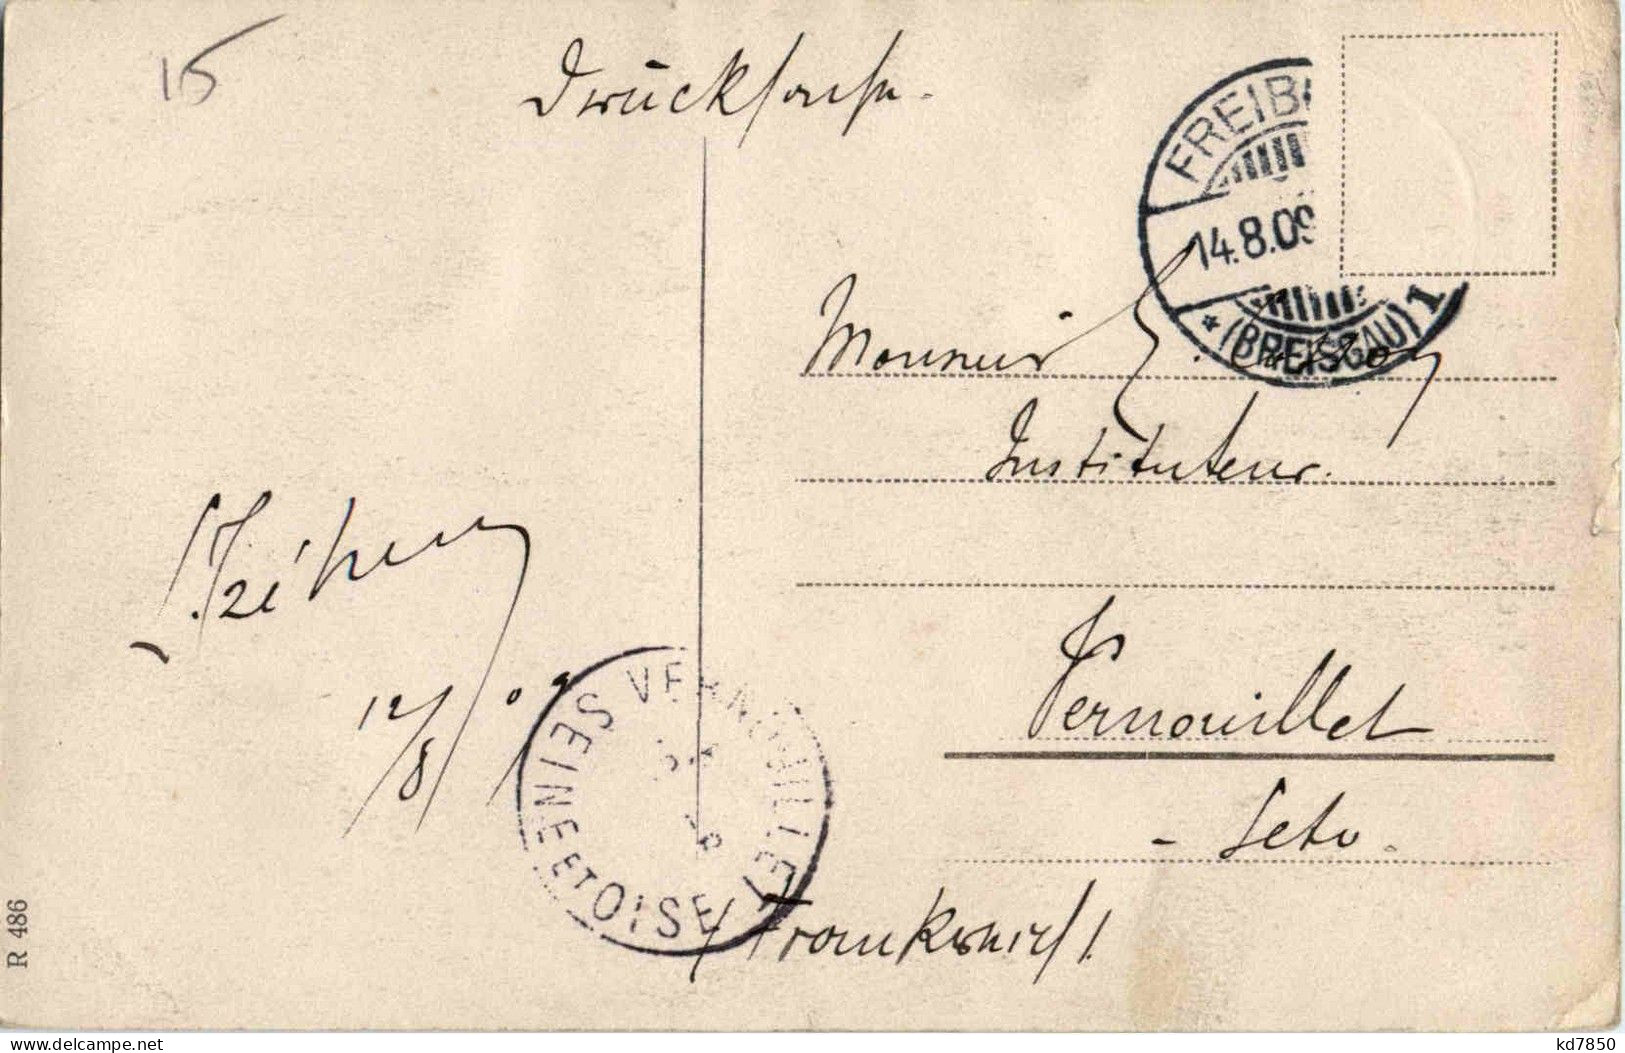 15
Drucksache.
FREIB
14.8.09
* (BREISGAU) 1
Monsieur
Instituteur.
12/8 09
VERNOUILLET
SEINE ET OISE
Vernouillet
- Seto -
(Frankreich).
R 486
delcampe.net
kd7850